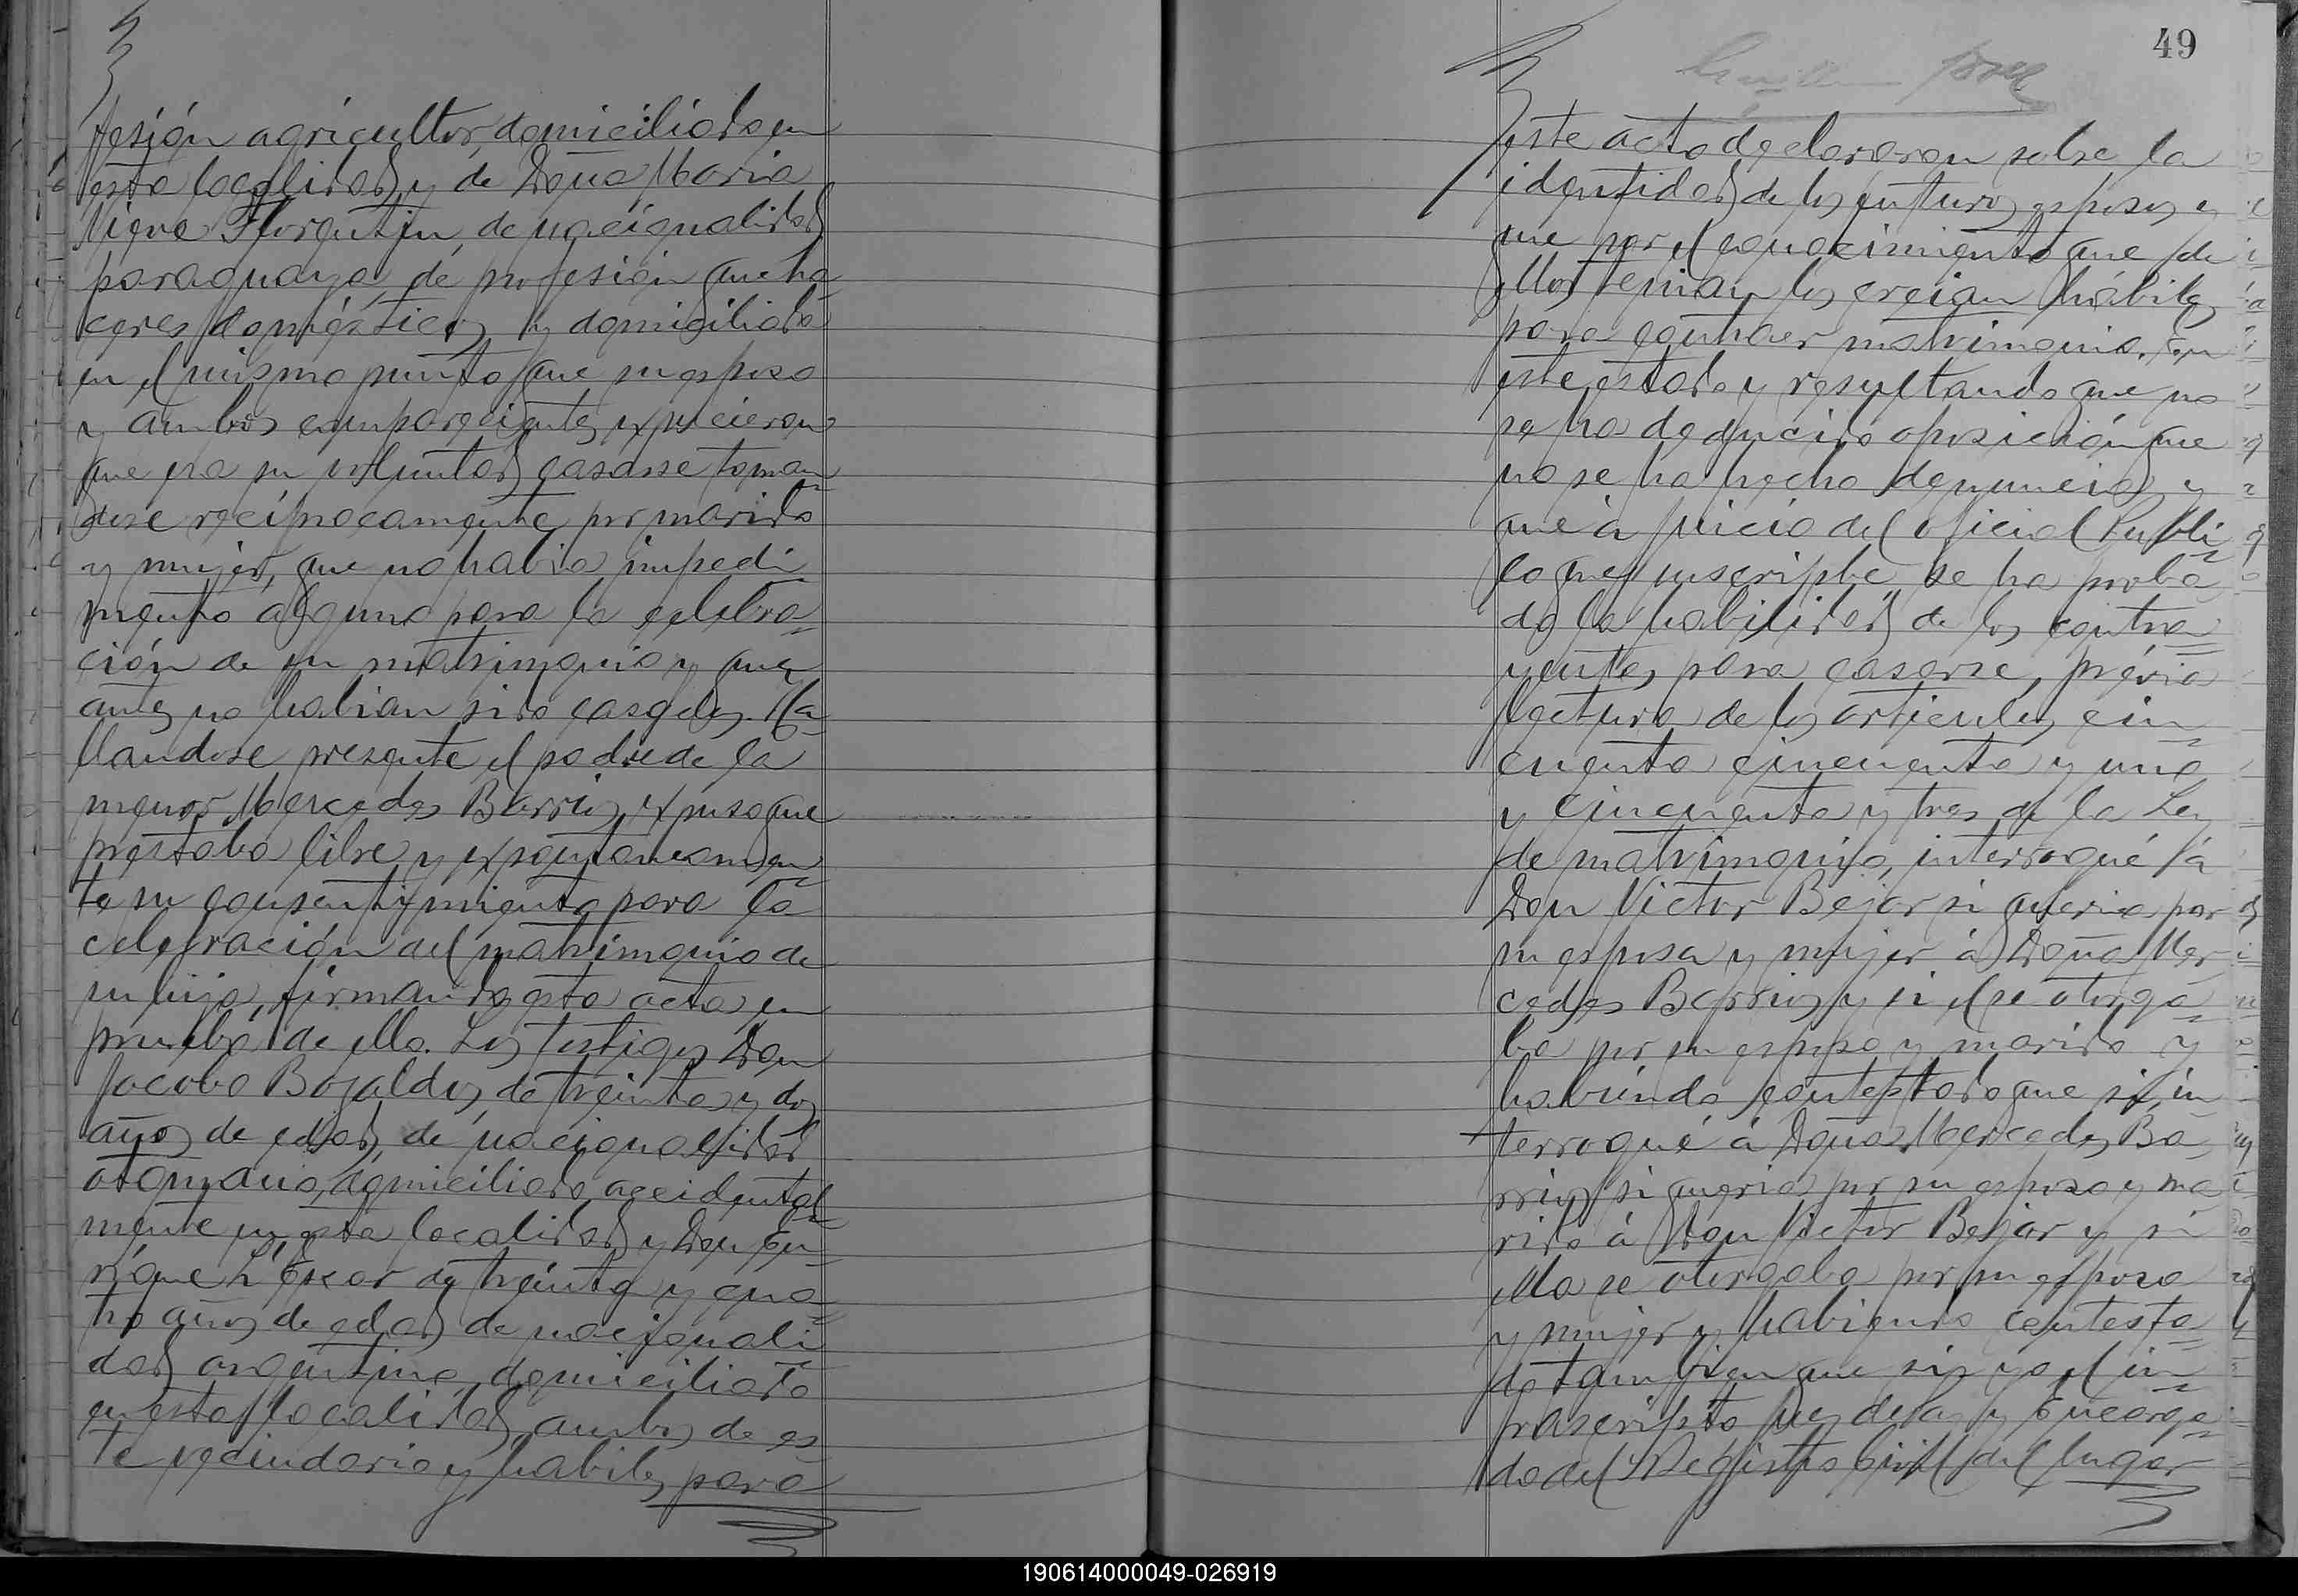 fesión agricultor, domiciliado en
esta localidad, y de Doña Maria
Nieve Florentin, de nacionalidad
paraguaya, de profesión queha
ceres domésticos y domiciliada
en el mismo punto que su esposo
y ambos comparecientes expusieron
que era su voluntad casarse toman
dose recíprocamente por marido
y mujer, que no habia impedi
mento alguno para la celebra
ción de su matrimonio y que
antes no habian sido casados. Ha
llandose presente el padre de la
menor Mercedes Barrios, expuso que
prestaba libre y expontaneamen
te su consentimiento para la
celebración del matrimonio de
su hija, firmando esta acta en
prueba de ello. Los testigos Don
Jacobo Bogaldos, de treinta y dos
años de edad, de nacionalidad
otomano, domiciliado accidental
mente en esta localidad y Don En
rique de treinta y cua
tro años de edad de nacionali
dad argentino, domiciliado
en esta localidad, ambos de es
te vecindario y habiles para
49
este acto declararon sobre la
identidad de los futuros esposos y
que por el conocimiento que de
ellos tenian los creian hábiles
para contraer matrimonio. En
este estado y resultando que no
se ha deducido oposición que
no se ha hecho denuncia, y
que á juicio del oficial Publi
co que suscribe, se ha proba
do la habilidad de los contra
yentes para casarse, prévia
lectura de los articulos cin
cuenta cincuenta y uno
y cincuenta y tres de la Ley
de matrimonio, interrogué á
Don Victor Bejar si queria por
su esposa y mujer á Doña Mer
cedes Barrios y si el se otorga
ba por su esposo y marido y
habiendo contestado que si, in
terrogué á Doña Mercedes Ba
rrios si queria por su esposo y ma
rido á Don Victor Bejar y si
ella se otorgaba por su esposa
y mujer y habiendo contesta
do tambien que si, yo el in
frascripto Juez de Paz y Encarga
do del Registro Civil del lugar
190614000049-026919